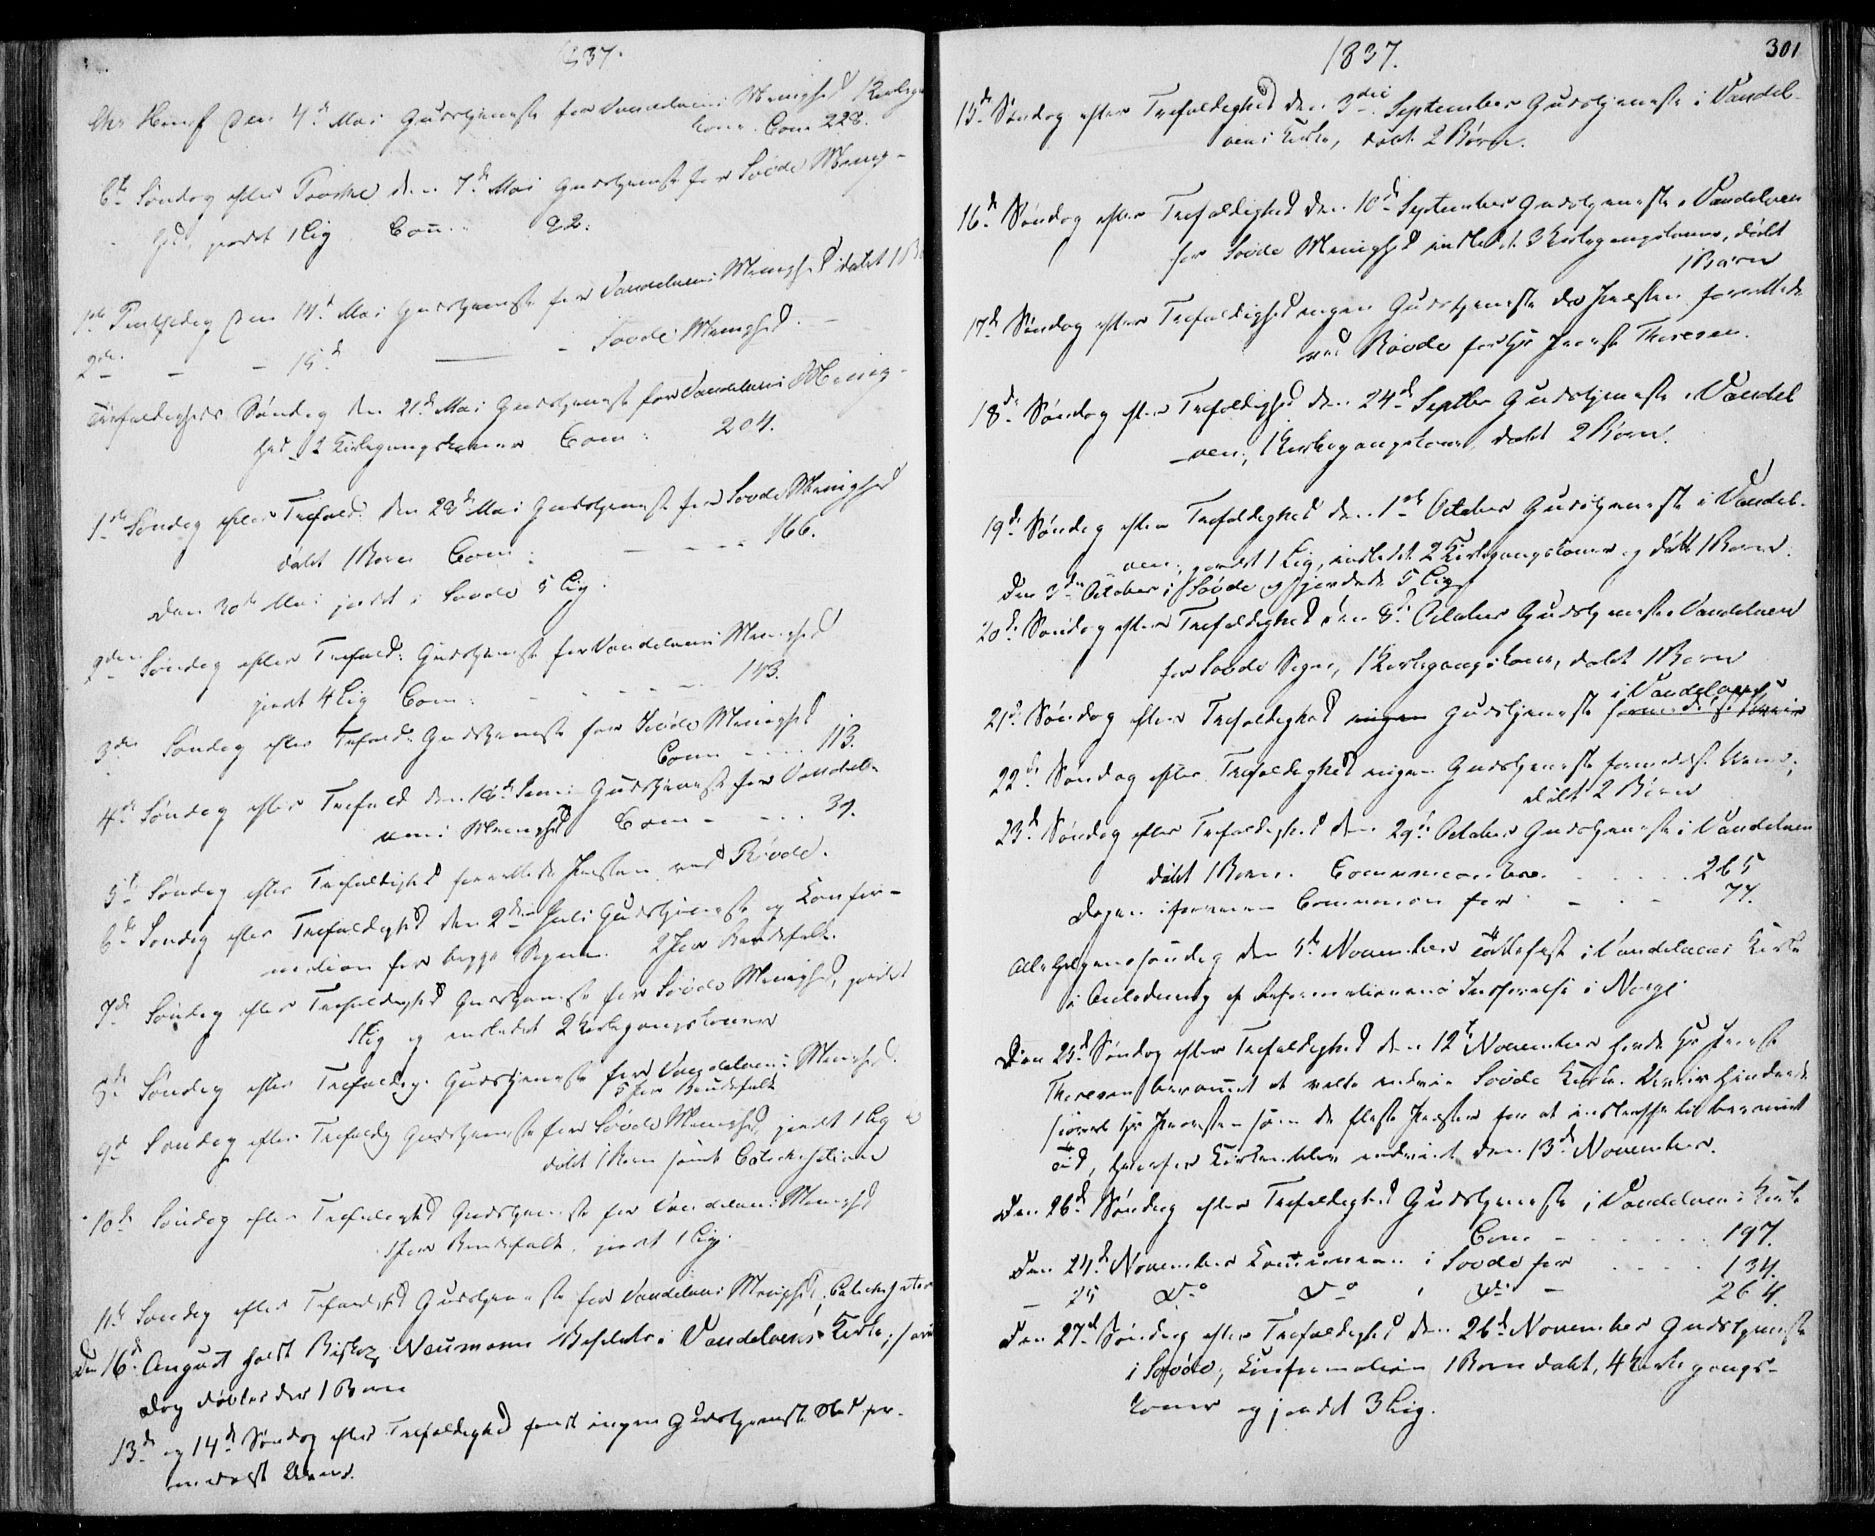 1837.
Chr Himf den 4de Mai Gudstjeneste for Vandelvens Menighed 1 Kirkegs
kone. Com 228.
6te Søndag efter Paaske den 7de Mai Gudstjeneste for Søvde Menig-
hed, jordet 1 Lig Com: 92.
1ste Pintsedag den 14de Mai Gudstjeneste for Vandelvens Menighed døbt 1 B
2den - - 15de - Søvde Menighed. -
Trefoldigheds Søndag den 21de Mai Gudstjeneste for Vandelvens Menig-
hed 2 Kirkegangskoner Com: 204.
1ste Søndag efter Trefold: den 28de Mai Gudstjeneste for Søvde Menighed
døbt 1 Barn Com: - - - - 166.
Den 30te Mai jordet i Søvde 5 Lig.
2den Søndag efter Trefold: Gudstjeneste for Vandelvens Menighed
jordet 4 Lig Com: - - - - 143.
3die Søndag efter Trefold: Gudstjeneste for Søvde Menighed
Com - - - 113.
4de Søndag efter Trefold den 18de Juni Gudstjeneste for Vandel-
vens Menighed Com - - - 34.
5te Søndag efter Trefoldighed forrettede Præsten ved Røvde.
6te Søndag efter Trefoldighed den 2den Juli Gudstjeneste og Confir-
mation for begge Sogne. 2 Par Brudefolk.
7de Søndag efter Trefoldighed Gudstjeneste for Søvde Menighed, jordet
1 Lig og indledet 2 Kirkegangskoner
8de Søndag efter Trefoldigh: Gudstjeneste for Vandelvens Menighed.
5 Par Brudefolk
9de Søndag efter Trefoldig Gudstjeneste for Søvde Menighed, jordet 1 Lig
døbt 1 Barn samt Catechisation
10de Søndag efter Trefoldighed Gudstjeneste for Vandelvens Menighed
1 Par Brudefolk, jordet 1 Lig.
11te Søndag efter Trefoldighed Gudstjeneste for Vandelvens Menighed, Catechisation
Den 16de August holdt Biskop Neumann Visitats i Vandelvens Kirke; samme
Dag døbtes der 1 Barn
13de og 14de Søndag efter Trefoldighed fandt ingen Gudstjeneste Sted for-
medelst Uveir.
1837.
301
15de Søndag efter Trefoldighed den 3die September Gudstjeneste i Vandel-
vens Kirke, døbt 2 Børn.
16de Søndag efter Trefoldighed den 10de September Gudstjeneste i Vandelven
for Søvde Menighed indledet 3 Kirkegangskoner, døbt
1 Barn
17de Søndag efter Trefoldighed ingen Gudstjeneste da Præsten forrettede
ved Røvde for Hr Provst Thoresen.
18de Søndag efter Trefoldighed den 24de Septbr Gudstjeneste i Vandel
-ven, 1 Kirkegangskone, døbt 2 Børn.
19de Søndag efter Trefoldighed den 1ste October Gudstjeneste i Vandel-
ven, jordet 1 Lig, indledet 2 Kirkegangskoner og døbt 1 Barn.
Den 3die October i Søvde og jordede 5 Lig
20de Søndag efter Trefoldighed den 8de October Gudstjeneste i Vandelven
for Søvde Sogn, 1 Kirkegangskone, døbt 1 Barn
i Vandelven
21de Søndag efter Trefoldighed ingen Gudstjeneste formedelst Uveir
22de Søndag efter Trefoldighed ingen Gudstjeneste formedelst Uveir,
døbt 2 Børn
23de Søndag efter Trefoldighed den 29de October Gudstjeneste i Vandelven
døbt 1 Barn. Communicantere. - - - 265
Dagen iforveien Communion for - - - 77.
Alle Helgens søndag den 5te November Takkefest i Vandelvens Kirke
i Anledning af Reformationens Indførelse i Norge
Den 25de Søndag efter Trefoldighed den 12te November havde Hr Provst
Thoresen berammet at ville indvie Søvde Kirke. Uveir hindrede
saavel Hr Provsten som de fleste Præster for at indtræffe til berammet
Tid, hvorfor Kirken blev indviet den 13de November.
Den 26de Søndag efter Trefoldighed Gudstjeneste i Vandelvens Kirke
Com - - - - - 197.
Den 24de November Communion i Søvde for - - - 134.
- 25 Do Do i Do - 264.
Den 27de Søndag efter Trefoldighed den 26de November Gudstjeneste
i Søvde, Confirmation 1 Barn døbt, 4 Kirkegangs-
koner og jordet 3 Lig.